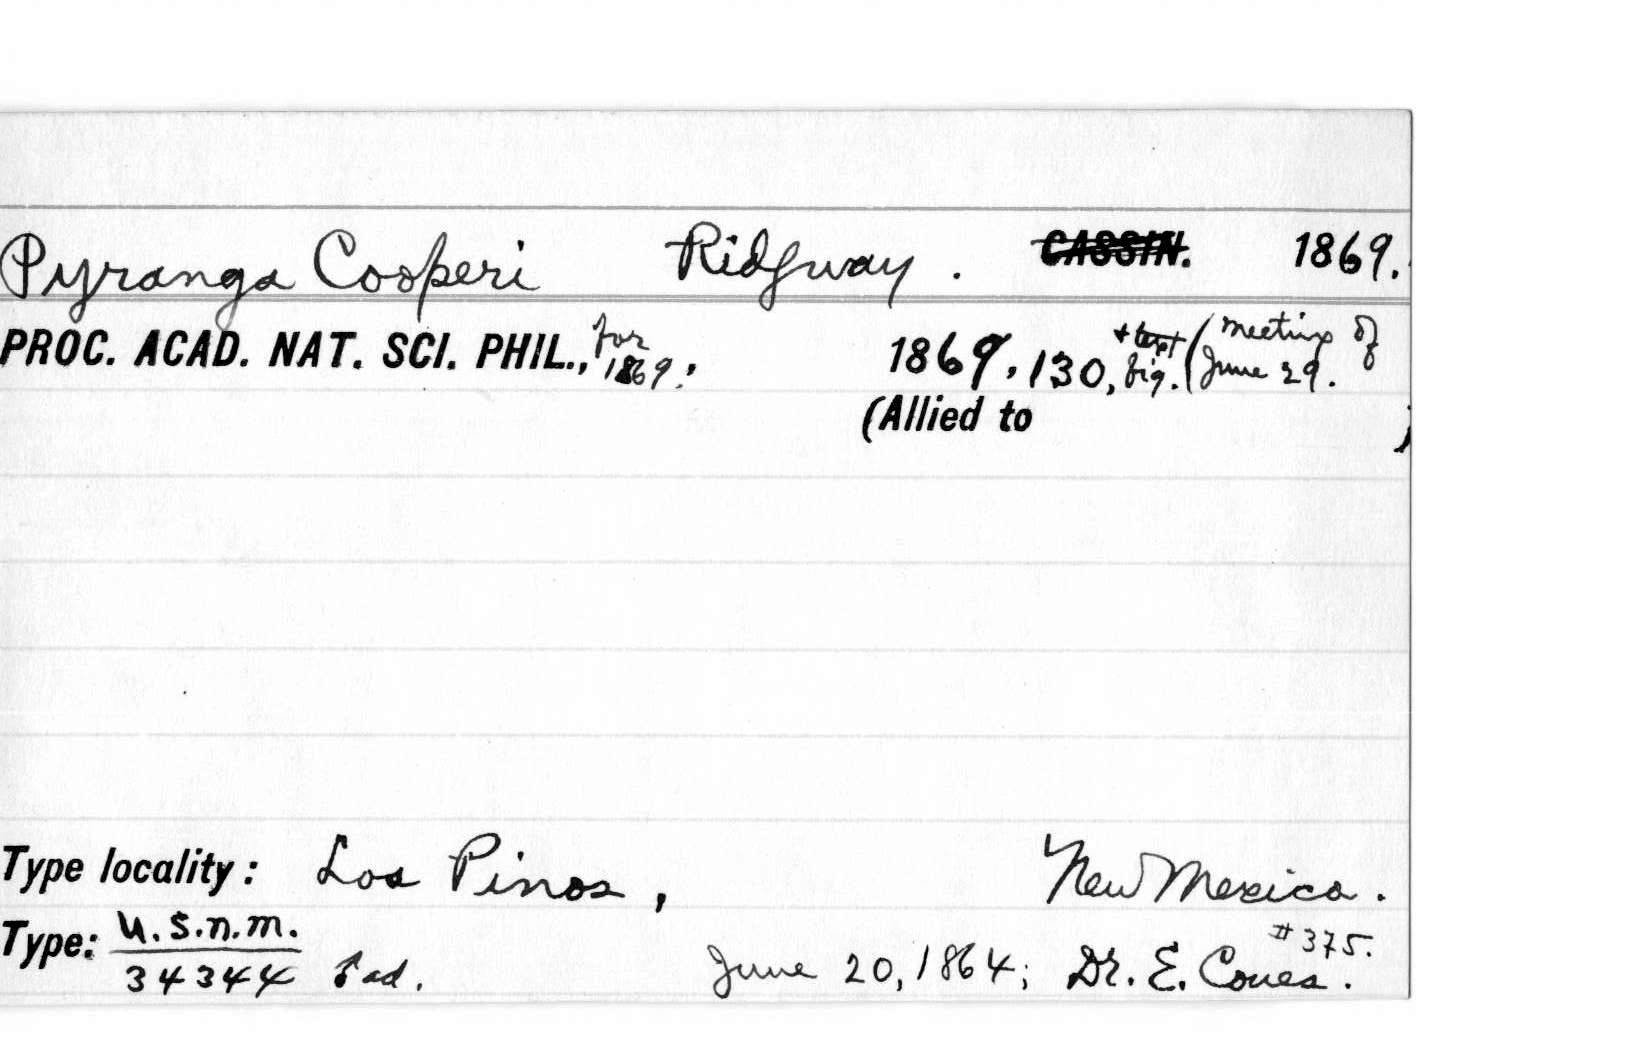 Pyranga Cooperi Ridgway. CASSIN. 1869.
PROC. ACAD. NAT. SCI. PHIL., for 1869., 1869. 130, + text fig. (meeting of June 29.
(Allied to )
Type locality: Los Pinos, New Mexico.
Type: U.S.N.M. #375.
34344 ad. June 20, 1864; Dr. E. Coues.